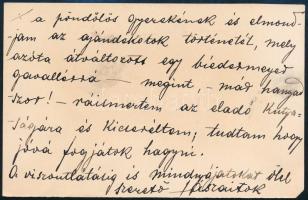 a pöndölös gyerekének és elmond-
jam az ajándékotok történetét, mely
azóta átváltozott egy biedermeyer
gavallérrá – megint, – már hanyad-
szor! – ráismertem az eladó
ságára és kicseréltem; tudtam hogy
jóvá fogjátok hagyni.
A viszontlátásig is mindnyájatokat ölel
szerető